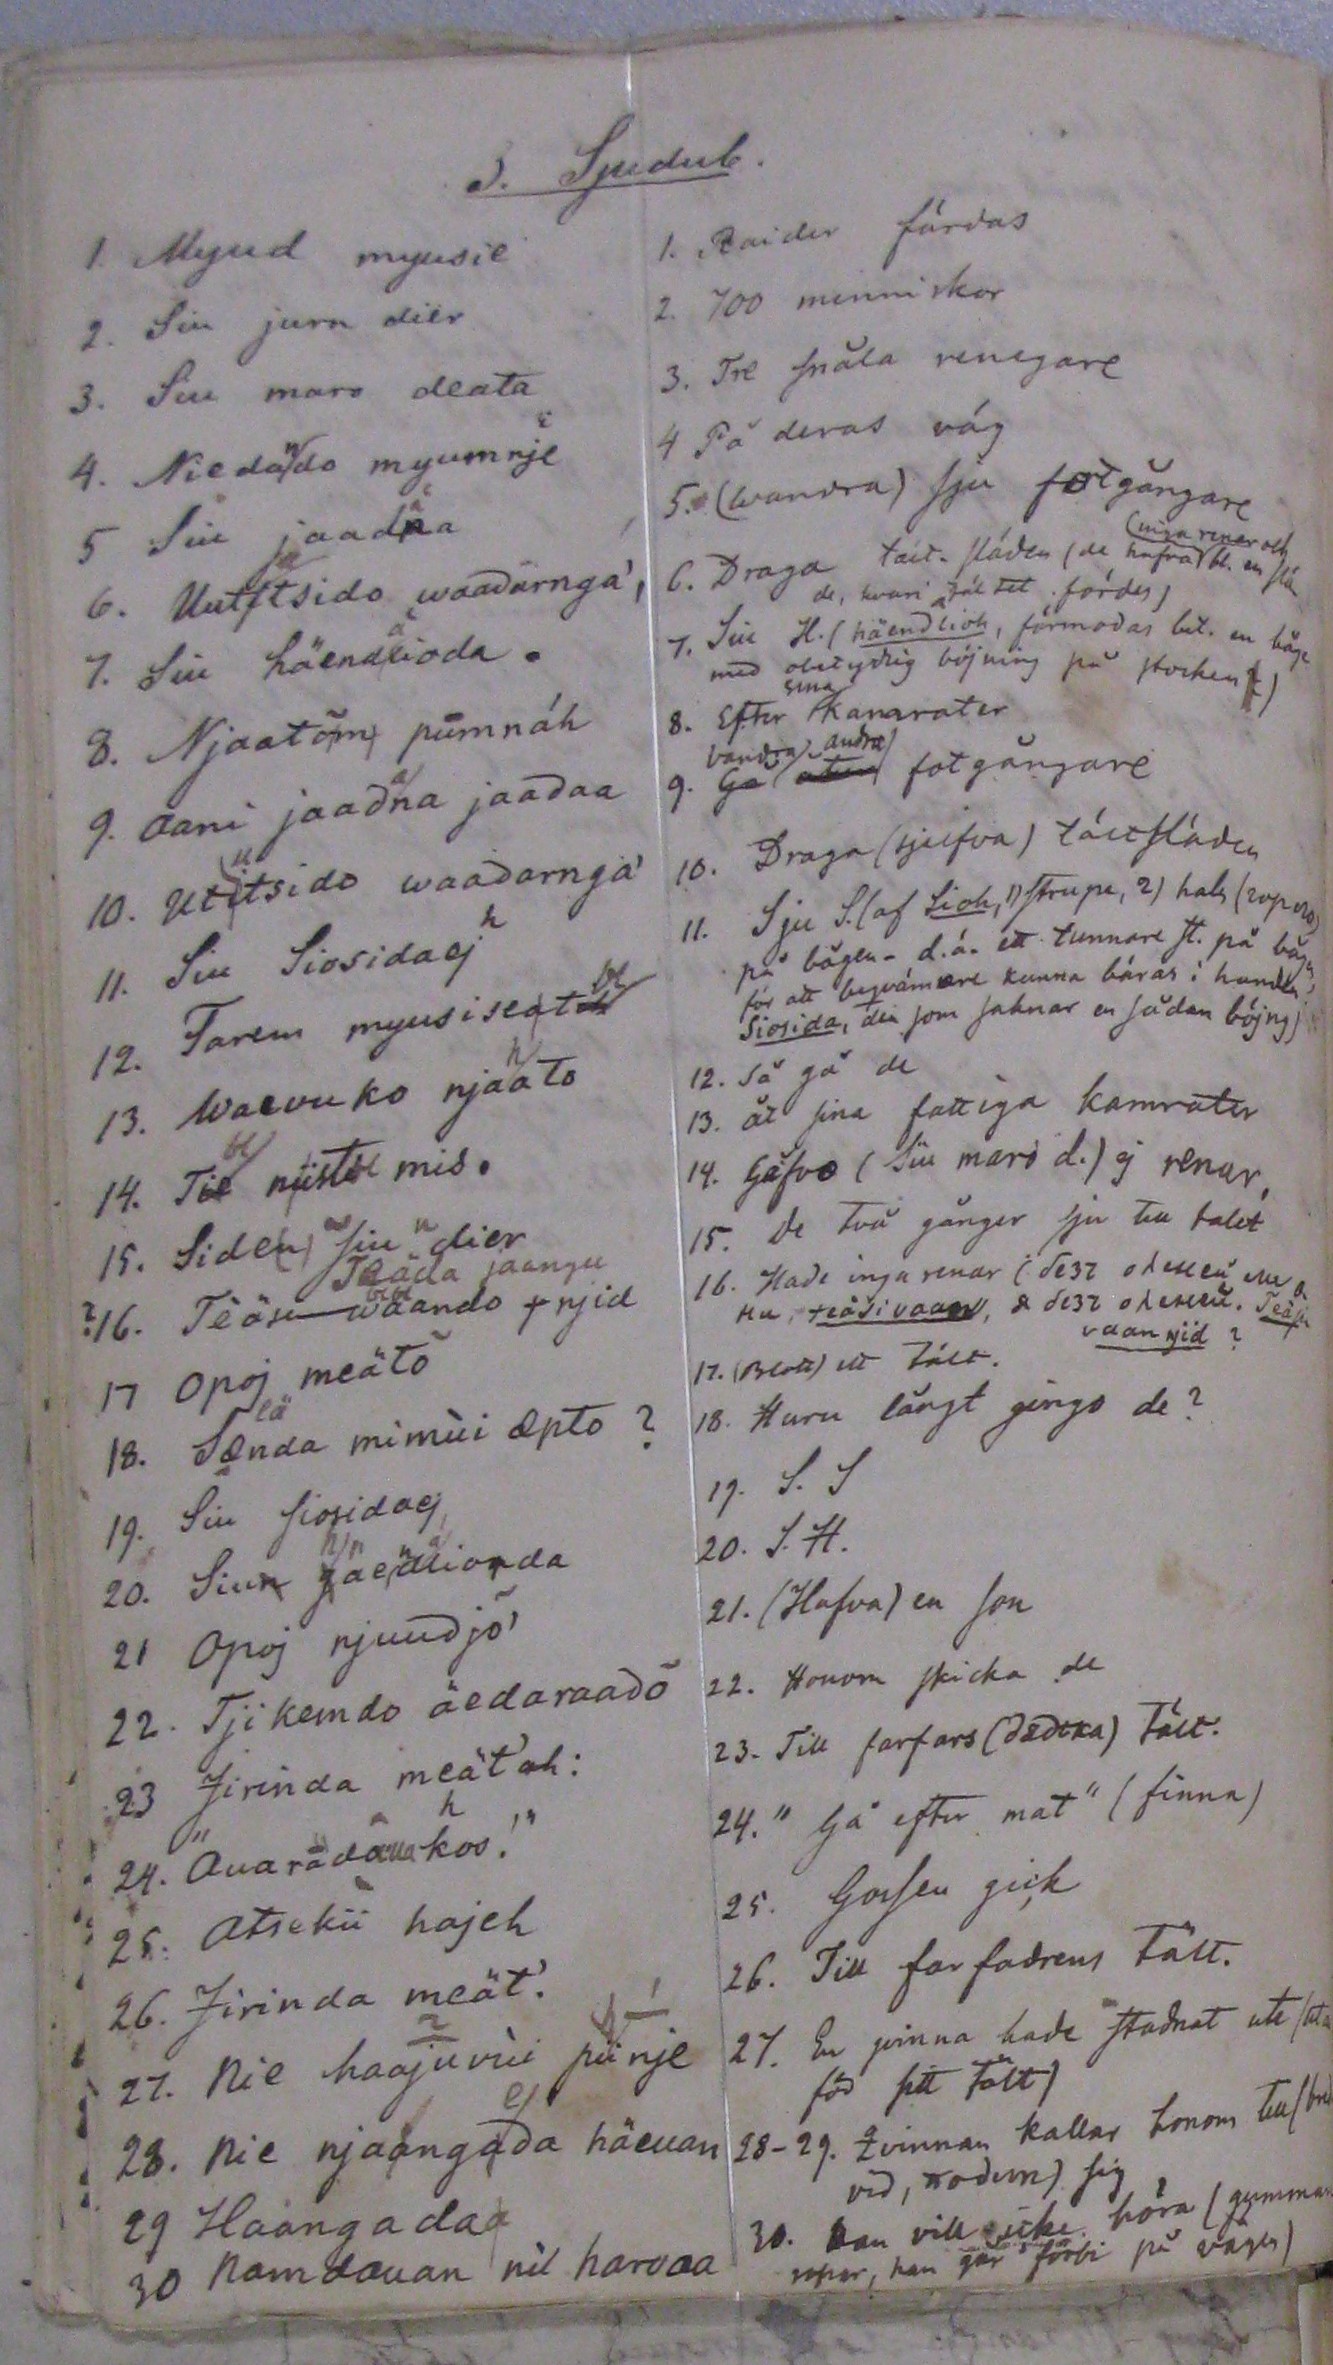 3. Sjudub.
1. Myud myusie
2. Siu jurn dier
3. Siu maro deata
4. Niedando myumnje
5 Siu jaadna
6. Uutitsido waaðarnga',
7. Siu häendlioda.
8. Njaatom pumnáh
9. Oani jaaðna jaaðaa
10. Utitsido waaðarnga'
11. Siu Siosidaej
12. Tarem myusiseat
13. Waevuko njaato
14. Tie mis.
15. Siden Siu dier
Teäda jaangu
?16. Teäsi waando njid
17 Opoj meäto
18. Sænda mimüi æpto?
19. Siu siosidaej
20. Siun
21 Opoj njuuðjö'
22. Tjikemdo äedaraaðö
23 Jirinda meät'ah:
24. "Auarädau kos!"
25. Atsekü hajeh
26. Jirinda meät'.
27. Nie haajuvüi püinje
28. Nie njaangaða häeuan
29 Haangada
30 Namdauan nil harvaa
1. Raider färdas
2. 700 menniskor
3. Tre snåla renegare
4 På deras väg
5. (wandra) sju fotgångare
(inga renar och
6. Draga tält-släden (de hafva bl. en slä
de, hvari tältet fördes)
7. Siu H. (häendlioh, förmodas bet. en båge
med obetydlig böjning på stocken)
8. Efter sina kamrater
vandra andra
9. Gå fotgångare
10. Draga (sjelfva) tältsläden
11. Sju S. (af Sioh, 1) strupe, 2) hals
på bågen - d.ä. ett tunnare st. på bågen,
för att beqvämare kunna bäras i handen
Siosida, den som saknar en sådan böjng)
12. Så gå de
13. åt sina fattiga kamrater
14. Gåfvo (Siu maro d.) ej renar,
15. De två gånger sju till talet
16. Hade inga renar (безъ оленей
безъ оленей. Teäsi
vaan njid?
17. (Blott) ett tält.
18. Huru långt gingo de?
19. S. S
20. S. H.
21. (Hafva) en son
22. Honom skicka de
23. Till farfars (дядька) tält.
24. "Gå efter mat" (finna)
25. Gossen gick
26. Till farfadrens tält.
27. En qvinna hade stadnat ute
för sitt tält)
28-29. Qvinnan kallar honom till
ved, sig
30. Han vill icke höra (gumman
ropar, han går förbi på vägen)